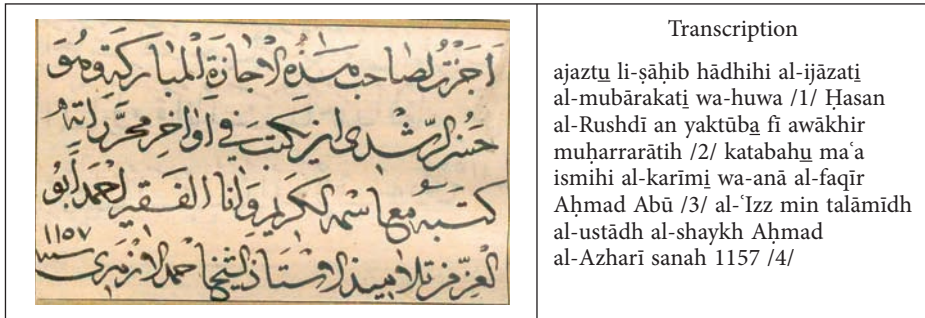 اجزت لصاحب هذه الاجازة المباركة وهو
حسن الرشدى ان يكتب فى اواخر محرراته
كتبه مع اسمه الكريم وانا الفقير احمد ابو
العز من تلاميذ الاستاذ الشيخ احمد سنة ١١٥٧
Transcription
ajaztu li-ṣāḥib hādhihi al-ijāzati
al-mubārakati wa-huwa /1/ Ḥasan
al-Rushdī an yaktūba fī awākhir
muḥarrarātih /2/ katabahu maʿa
ismihi al-karīmi wa-anā al-faqīr
Aḥmad Abū /3/ al-ʿIzz min talāmīdh
al-ustādh al-shaykh Aḥmad
al-Azharī sanah 1157 /4/